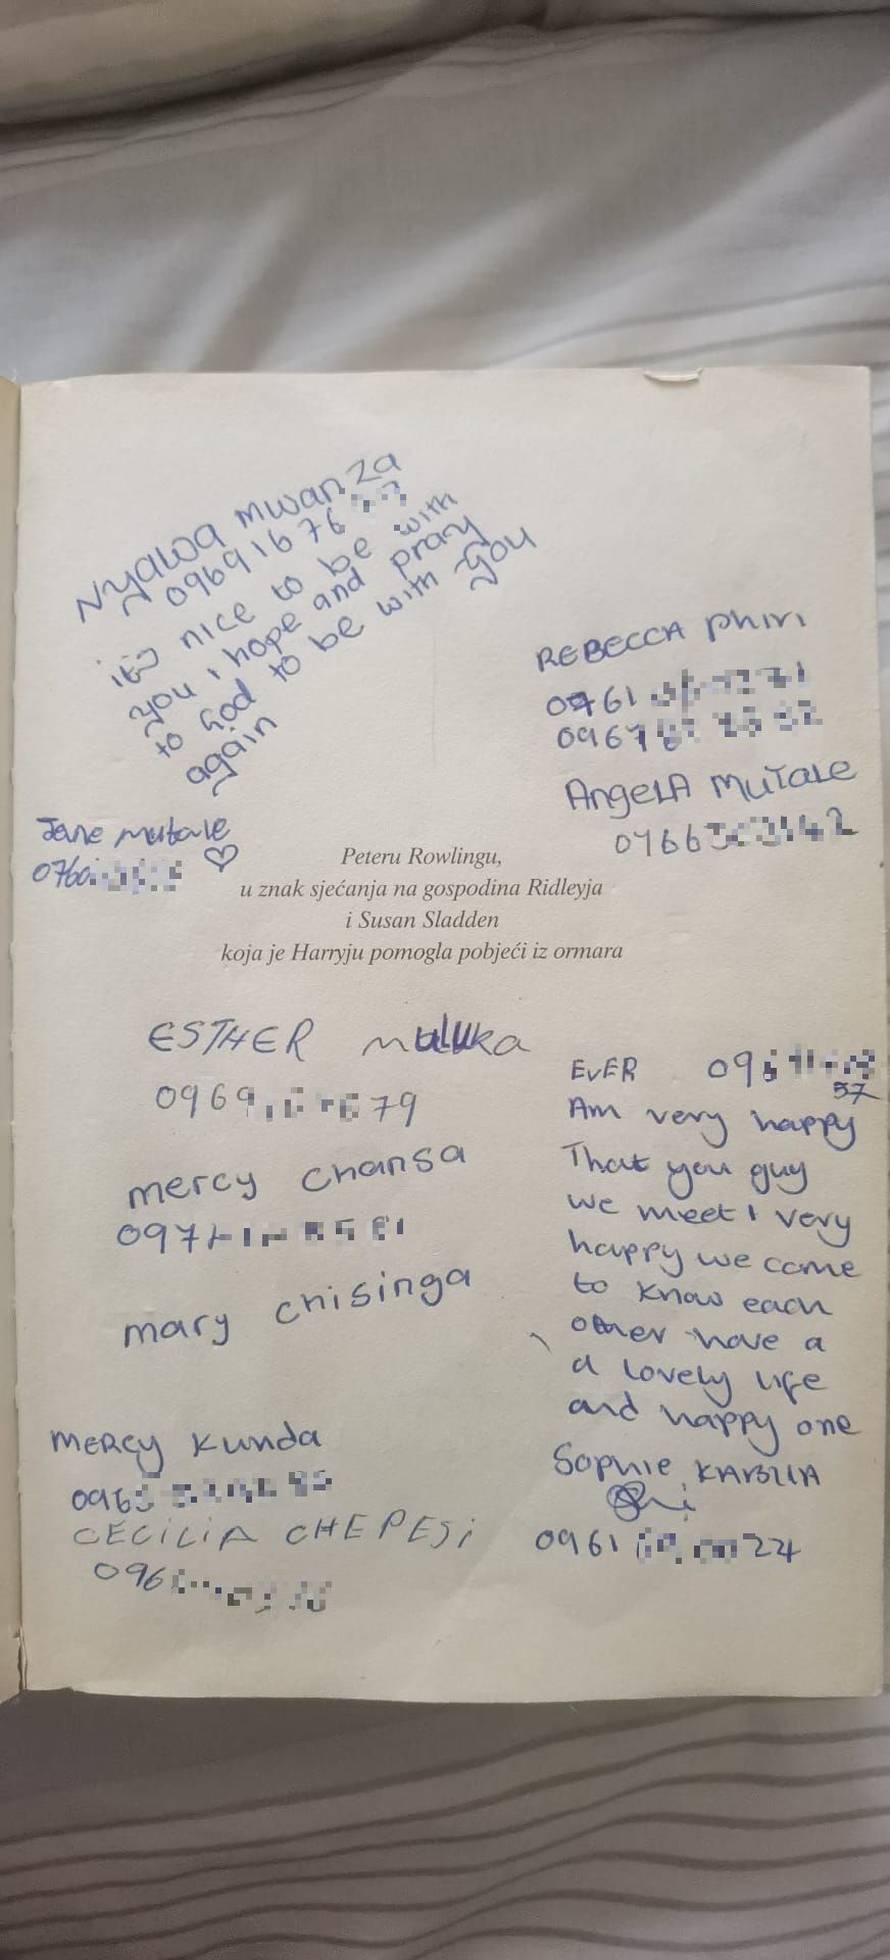 Nyawa Mwanza
09691676
it's nice to be with
you i hope and pray
to God to be with you
again
REBECCA Phiri
0761
0967
AngeLA MUTALE
0766
Jane mutale
076
Peteru Rowlingu,
u znak sjećanja na gospodina Ridleyja
i Susan Sladden
koja je Harryju pomogla pobjeći iz ormara
ESTHER
0969 79
mercy chansa
097
mary chisinga
MERCY Kunda
096
CECILIA CHEPESi
096
EVER 09
57
Am very happy
That you guy
we meet I very
happy we come
to know each
other have a
a lovely life
and happy one
Sophie
0961 24